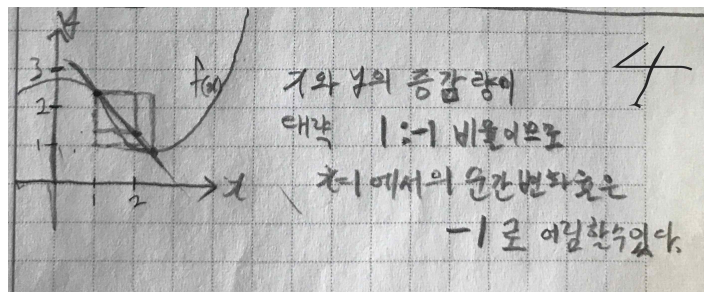 y
3
2
1
1
2
x
f(x)
x와 y의 증감량이
대략 1:-1 비율이므로
x=1에서의 순간변화율은
-1로 어림할수있다.
4